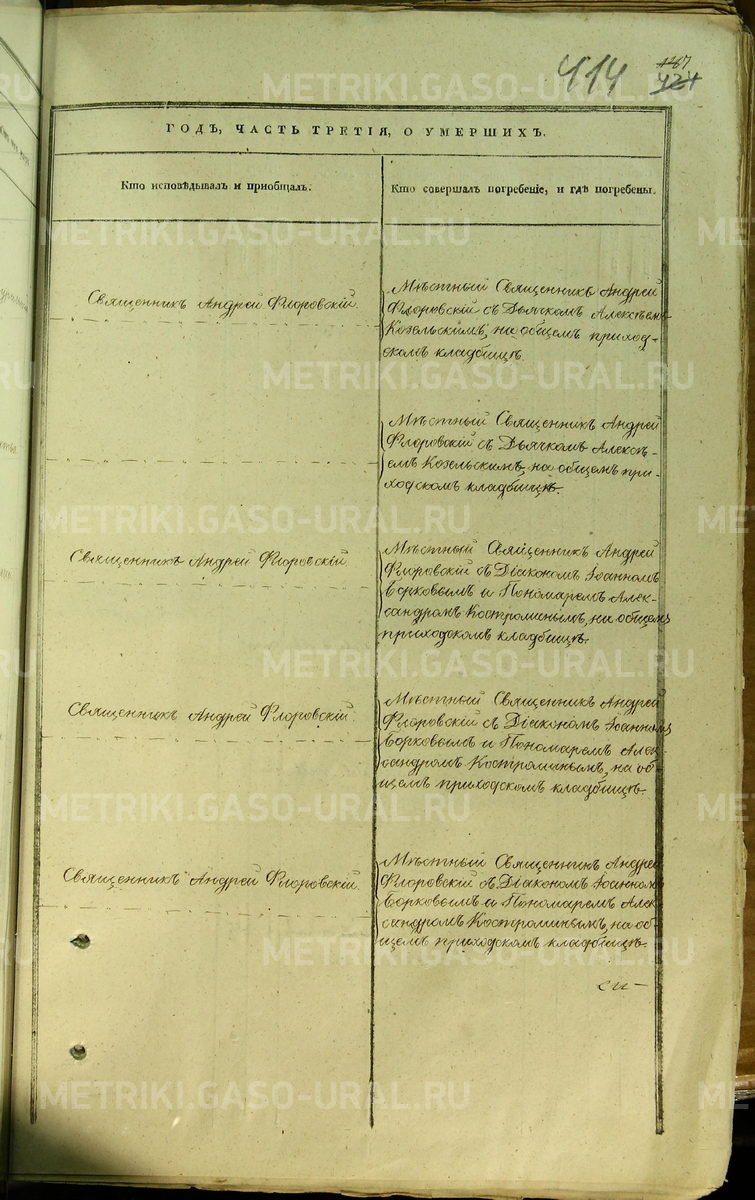 414
ГОДЪ, ЧАСТЬ ТРЕТІЯ, О УМЕРШИХЪ.
Кто исповѣдывалъ и приобщалъ.
Кто совершалъ погребеніе, и гдѣ погребены.
Священникъ Андрей Флоровскій.
Мѣстный Священникъ Андрей
Флоровскій съ Дьячкомъ Алексѣемъ
Козельскимъ, на общемъ приход-
скомъ кладбищѣ.
Мѣстный Священникъ Андрей
Флоровскій съ Дьячкомъ Алексѣ-
емъ Козельскимъ, на общемъ при-
ходскомъ кладбищѣ.
Священникъ Андрей Флоровскій.
Мѣстный Священникъ Андрей
Флоровскій съ Діакономъ Іоанномъ
и Пономаремъ Алек-
сандромъ Костроминымъ, на общемъ
приходскомъ кладбищѣ.
Священникъ Андрей Флоровскій.
Мѣстный Священникъ Андрей
Флоровскій съ Діакономъ Іоанномъ
и Пономаремъ Алек-
сандромъ Костроминымъ, на об-
щемъ приходскомъ кладбищѣ.
Священникъ Андрей Флоровскій.
Мѣстный Священникъ Андрей
Флоровскій съ Діакономъ Іоанномъ
и Пономаремъ Алек-
сандромъ Костроминымъ, на об-
щемъ приходскомъ кладбищѣ.
METRIKI.GASO-URAL.RU